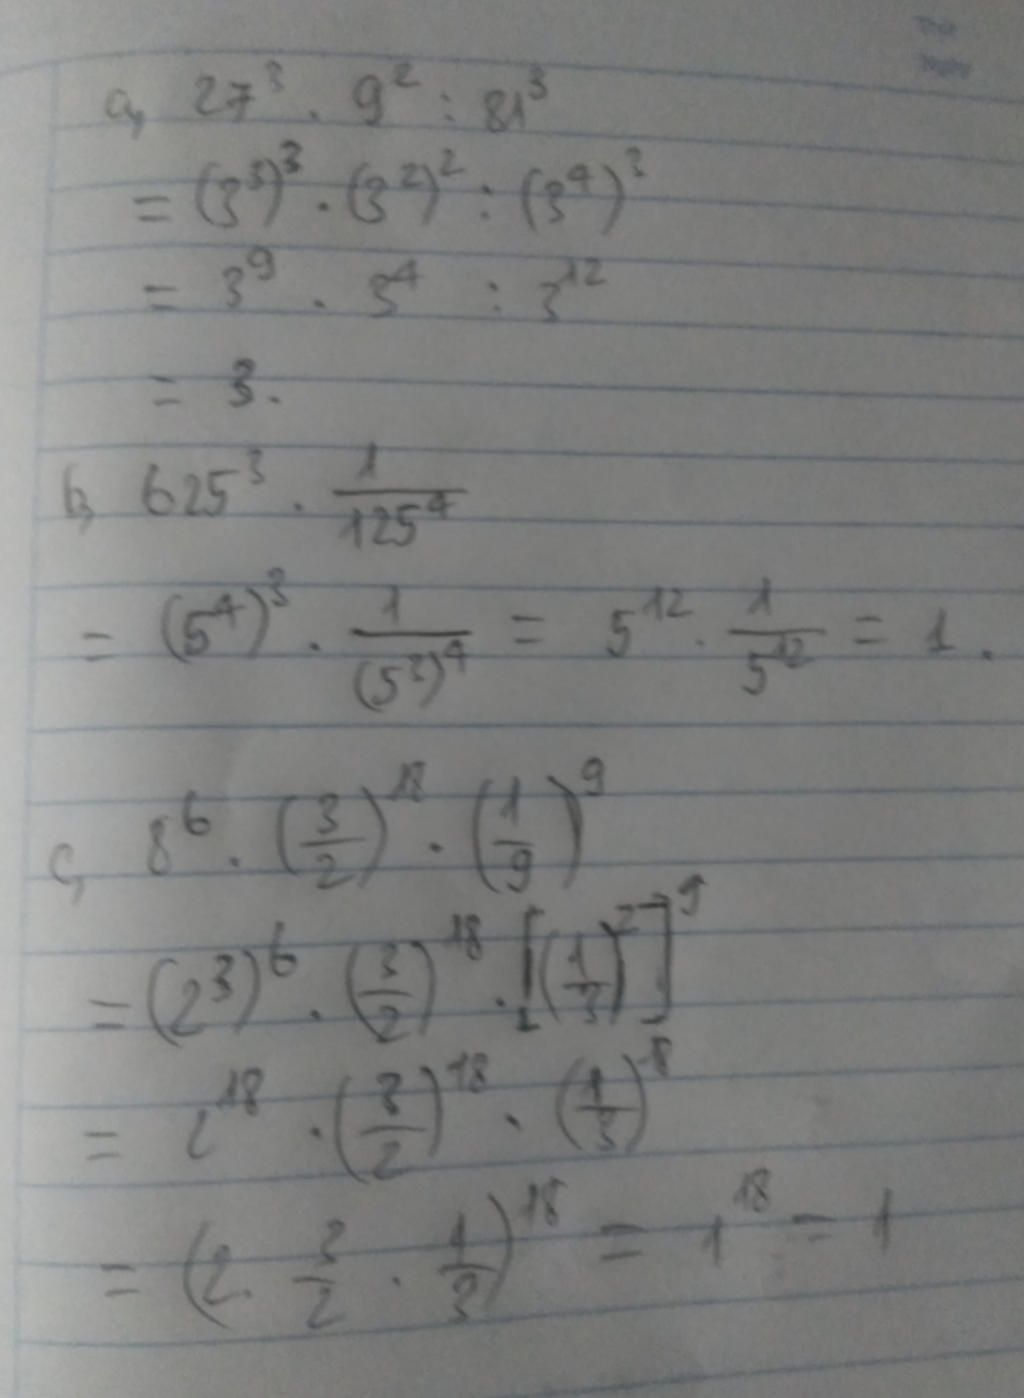 a, 27³ . 9² : 81³
= (3³)³ . (3²)² : (3⁴)³
= 3⁹ . 3⁴ : 3¹²
= 3.
b, 625³ . 1/125⁴
= (5⁴)³ . 1/(5³)⁴ = 5¹² . 1/5¹² = 1.
c, 8⁶ . (3/2)¹⁸ . (1/9)⁹
= (2³)⁶ . (3/2)¹⁸ . [(1/3)²]⁹
= 2¹⁸ . (3/2)¹⁸ . (1/3)¹⁸
= (2 . 3/2 . 1/3)¹⁸ = 1¹⁸ = 1